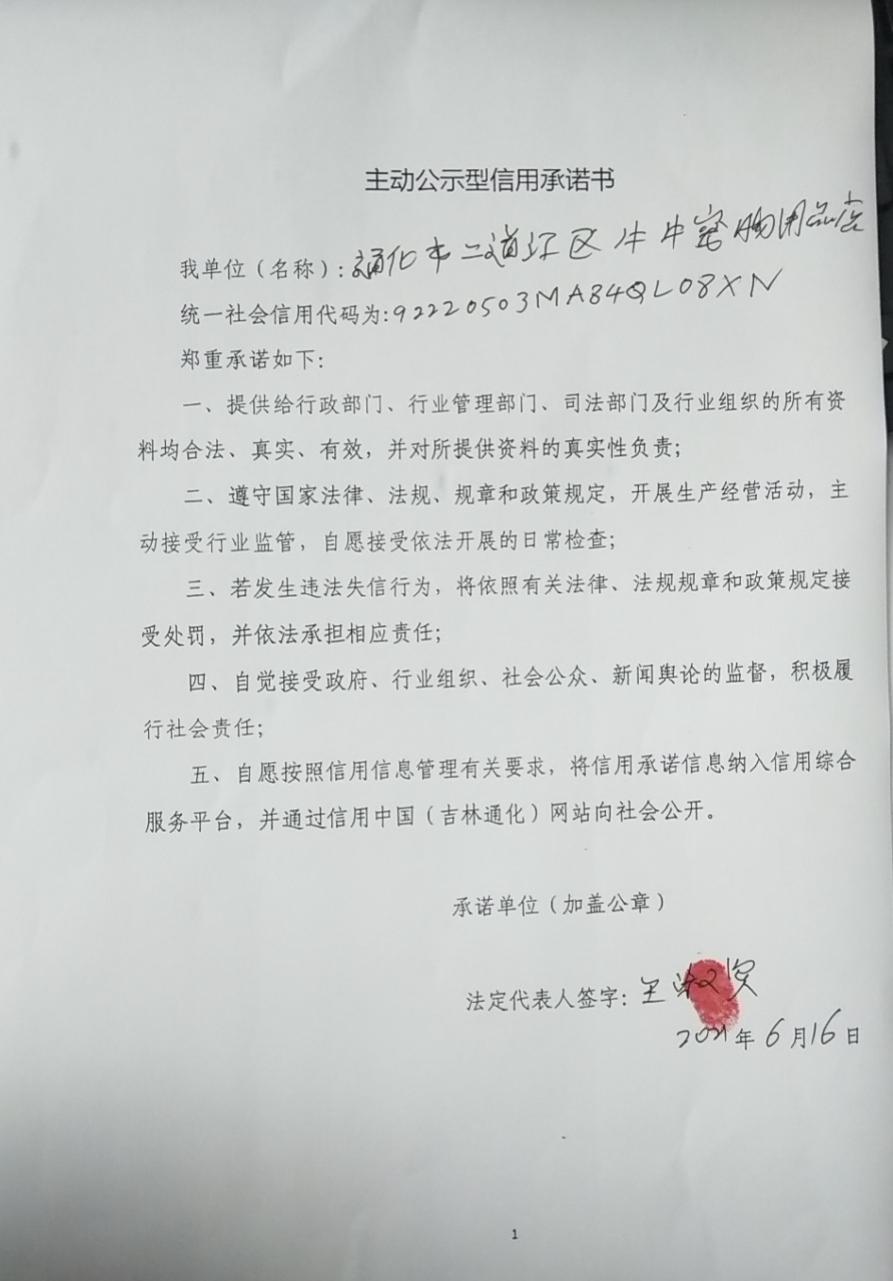 主动公示型信用承诺书
我单位（名称）：通化市二道江区牛牛宠物用品店
统一社会信用代码为:92220503MA84QL08XN
郑重承诺如下：
一、提供给行政部门、行业管理部门、司法部门及行业组织的所有资
料均合法、真实、有效，并对所提供资料的真实性负责；
二、遵守国家法律、法规、规章和政策规定，开展生产经营活动，主
动接受行业监管，自愿接受依法开展的日常检查；
三、若发生违法失信行为，将依照有关法律、法规规章和政策规定接
受处罚，并依法承担相应责任；
四、自觉接受政府、行业组织、社会公众、新闻舆论的监督，积极履
行社会责任；
五、自愿按照信用信息管理有关要求，将信用承诺信息纳入信用综合
服务平台，并通过信用中国（吉林通化）网站向社会公开。
承诺单位（加盖公章）
法定代表人签字：王
2021年6月16日
1